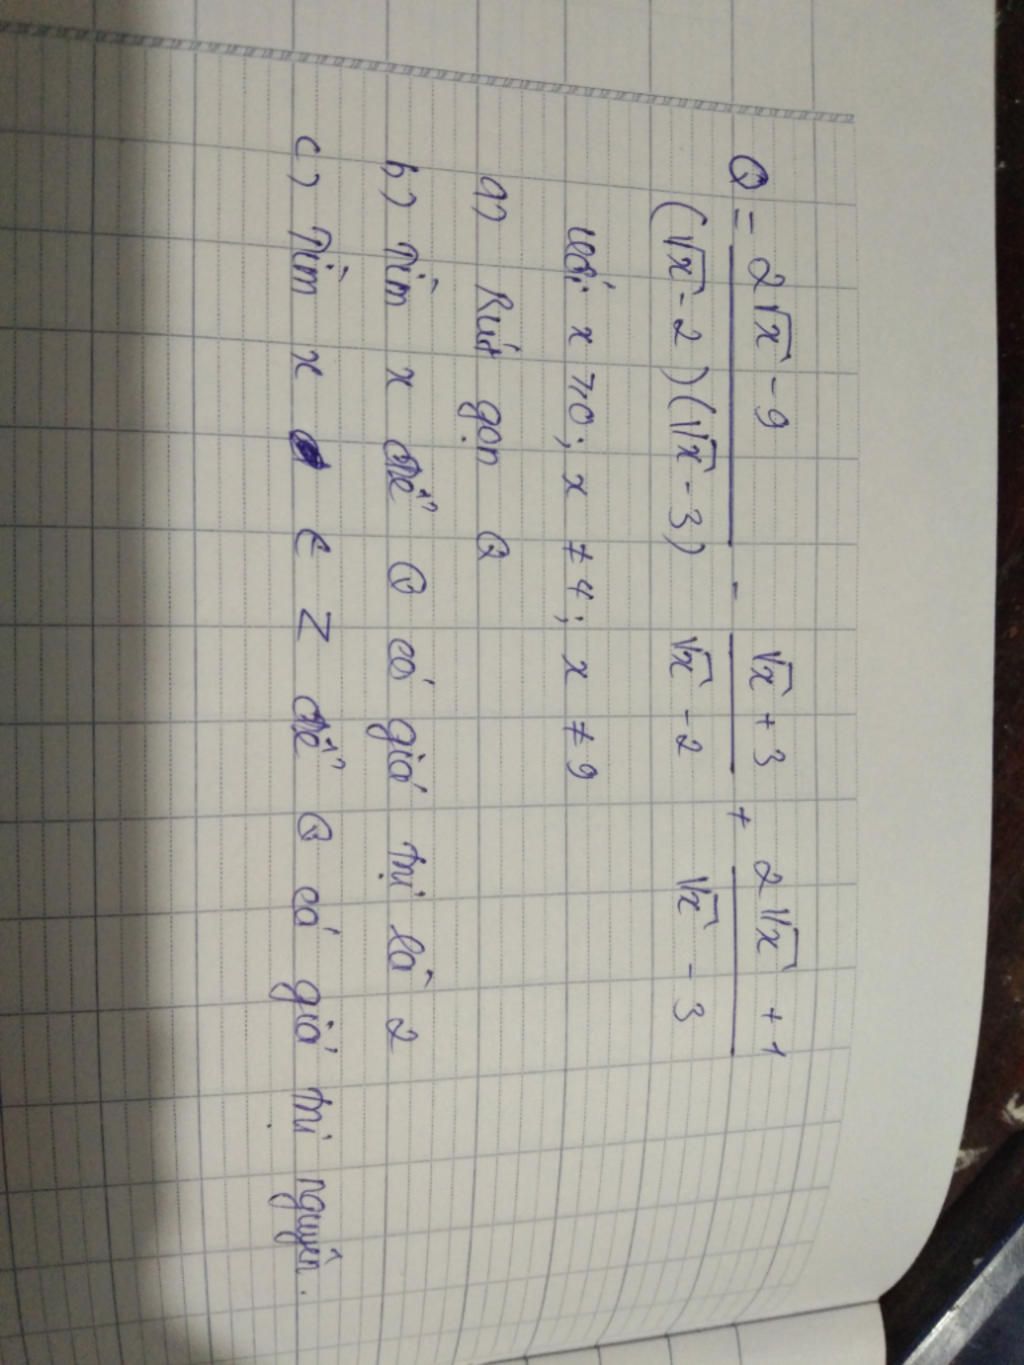 Q = \frac{2\sqrt{x} - 9}{(\sqrt{x} - 2)(\sqrt{x} - 3)} - \frac{\sqrt{x} + 3}{\sqrt{x} - 2} + \frac{2\sqrt{x} + 1}{\sqrt{x} - 3}
với x ≥ 0; x ≠ 4; x ≠ 9
a) Rút gọn Q
b) Tìm x để Q có giá trị là 2
c) Tìm x ∈ Z để Q có giá trị nguyên.